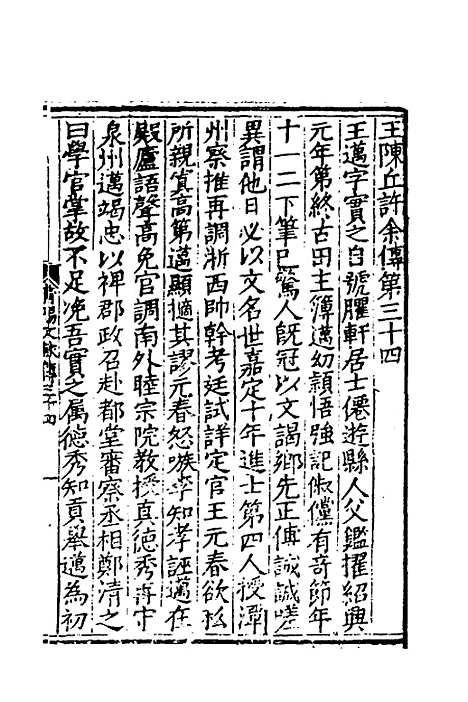 王陳丘許余傳第三十四
王邁字實之自號臞軒居士僊遊縣人父鑑擢紹興
元年第終古田主簿邁幼頴悟強記俶儻有竒節年
十一二下筆已驚人旣冠以文謁鄉先正傅誠誠嗟
異謂他日必以文名世嘉定十年進士第四人授潭
州察推再調浙西帥幹考廷試詳定官王元春欲私
所親寘高第邁顯擿其謬元春怒嗾李知孝誣邁在
殿廬語聲高免官調南外睦宗院教授真德秀再守
泉州邁竭忠以裨郡政召赴都堂審察丞相鄭清之
曰學官掌故不足浼吾實之属德秀知貢舉邁為初
莆陽文獻傳三十四